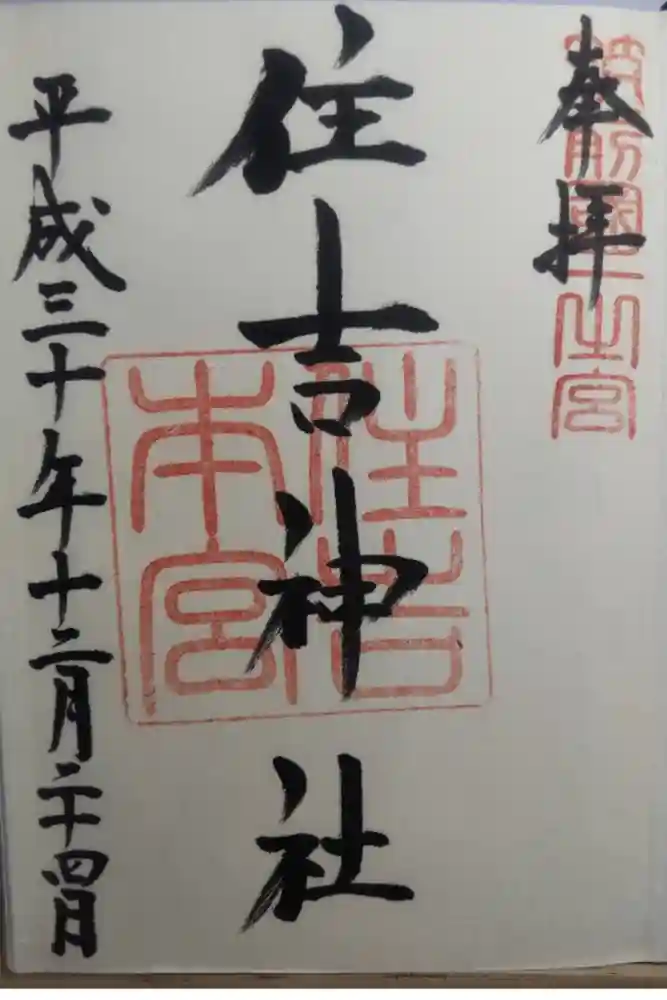 奉拝
筑前國一之宮
住吉神社
住吉本宮
平成三十年十二月二十四日